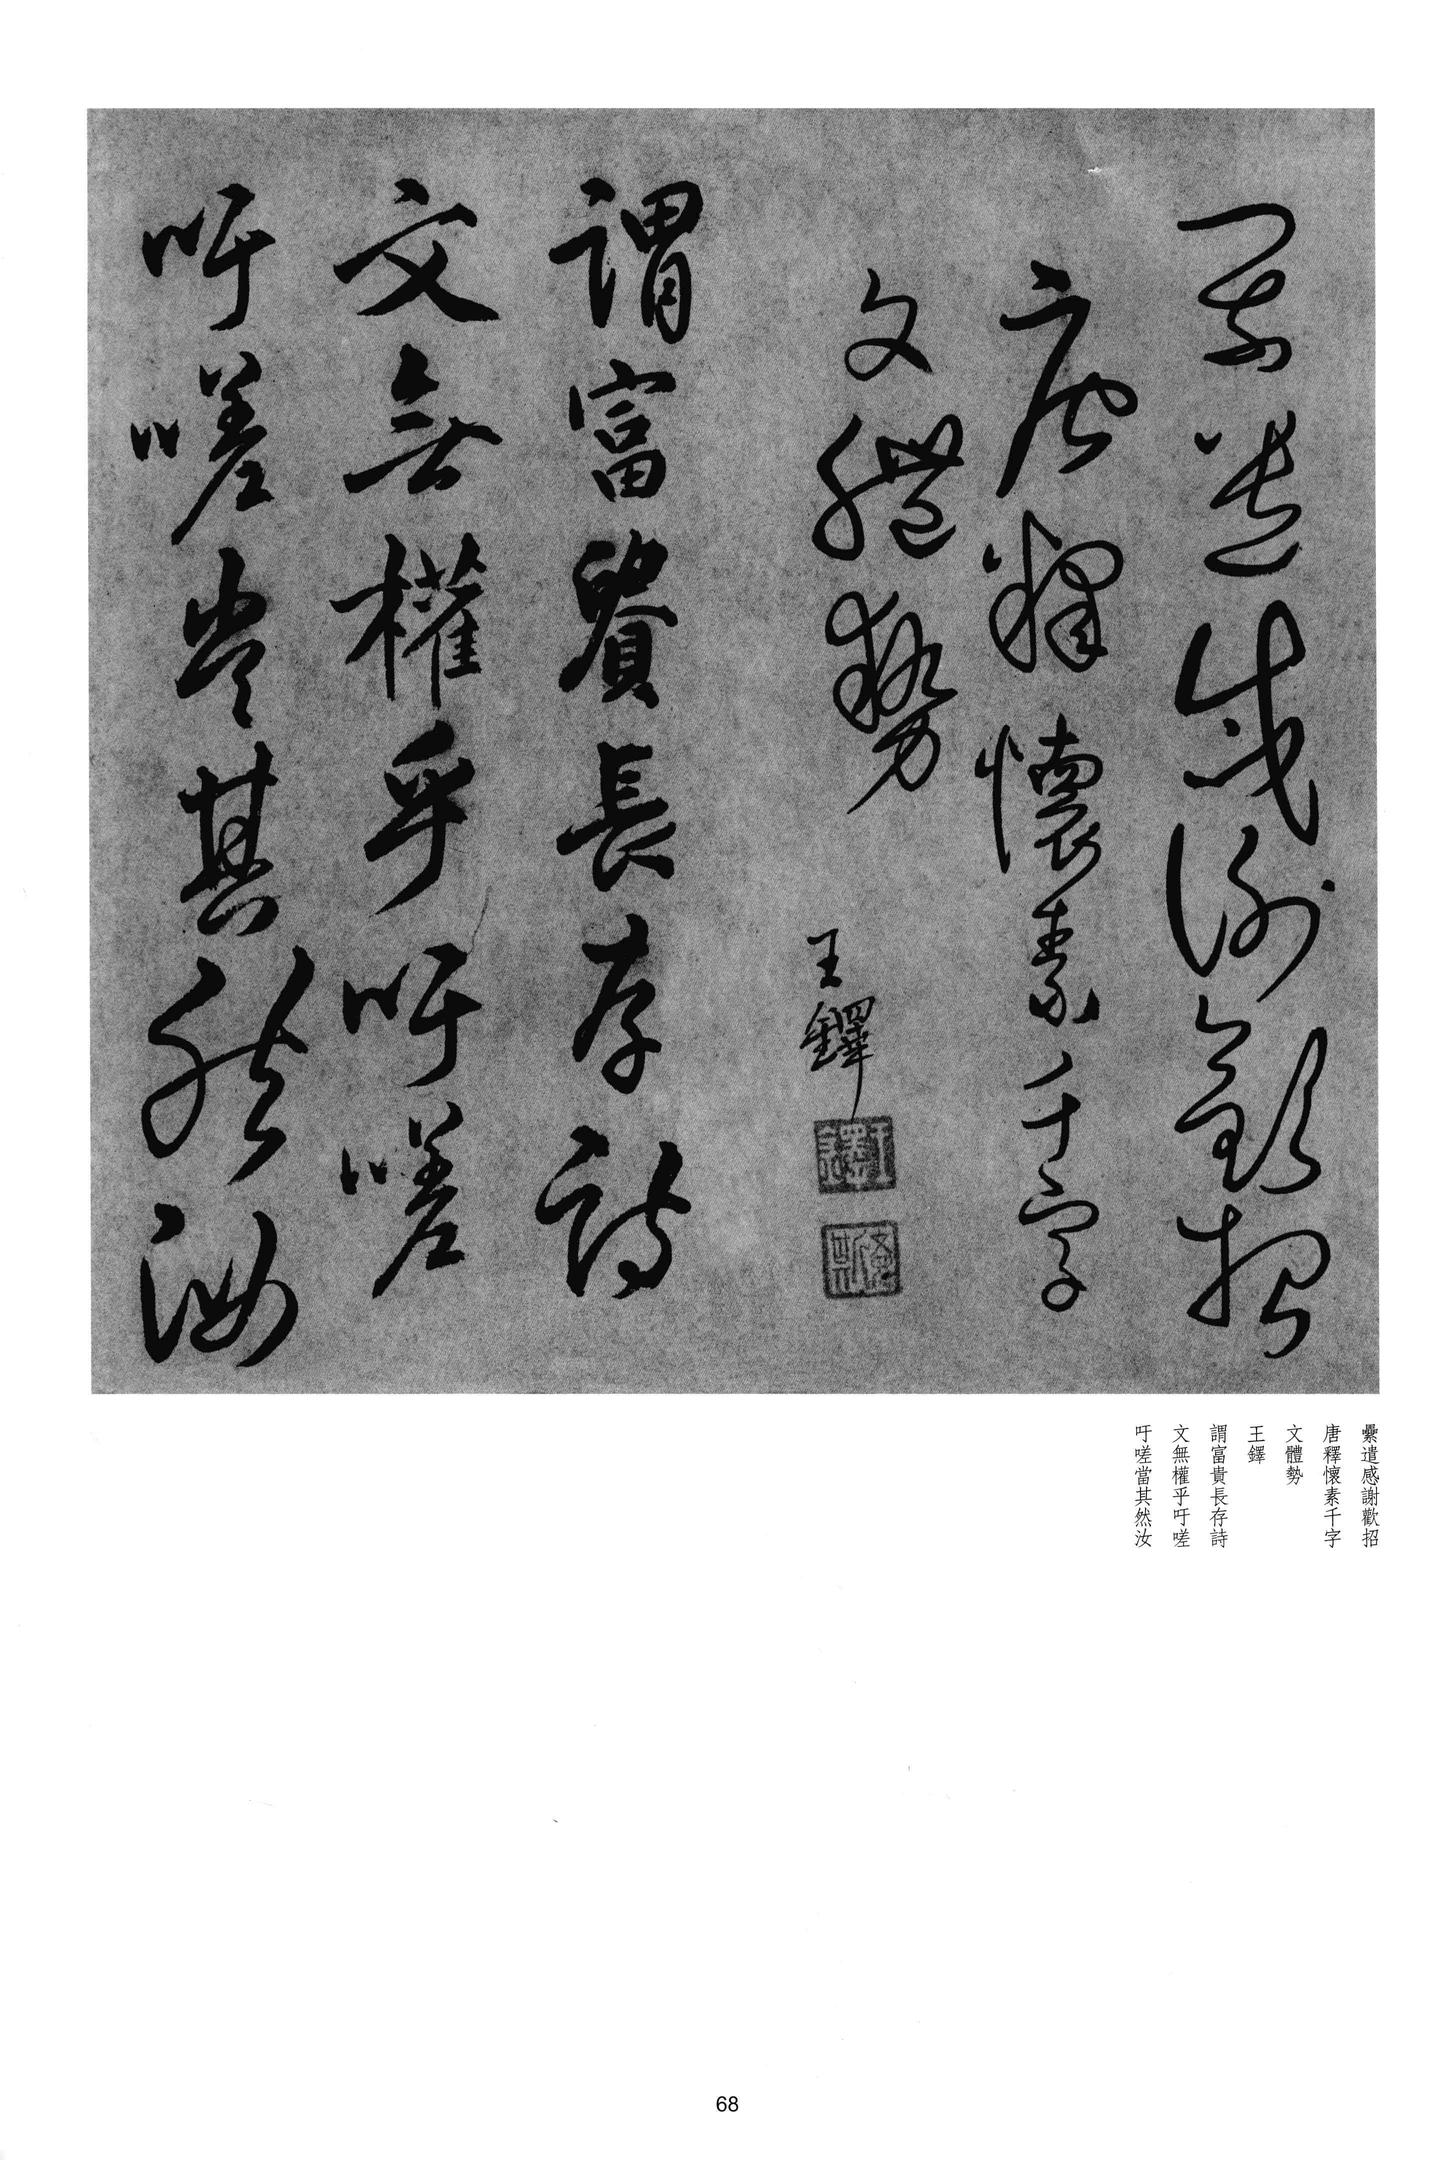 纍遣感謝歡招
唐釋懷素千字
文體勢
王鐸
謂富貴長存詩
文無權乎吁嗟
吁嗟豈其然汝
王鐸
纍遣感謝歡招
唐釋懷素千字
文體勢
王鐸
謂富貴長存詩
文無權乎吁嗟
吁嗟當其然汝
68